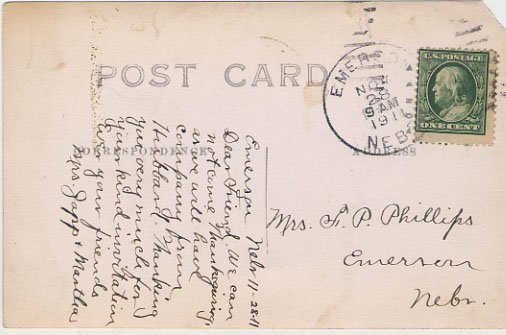 POST CARD
EMERSON
NOV
28
9 AM
1911
NEBR
U.S. POSTAGE
ONE CENT
CORRESPONDENCE
ADDRESS
Emerson Nebr 11-28-11
Dear Friend. We can
not come Thanksgiving,
as we will have
company from
Hubbard. Thanking
you very much for
your kind invitation
your friends
Mrs. Japp & Martha
Mrs. F. P. Phillips
Emerson
Nebr.